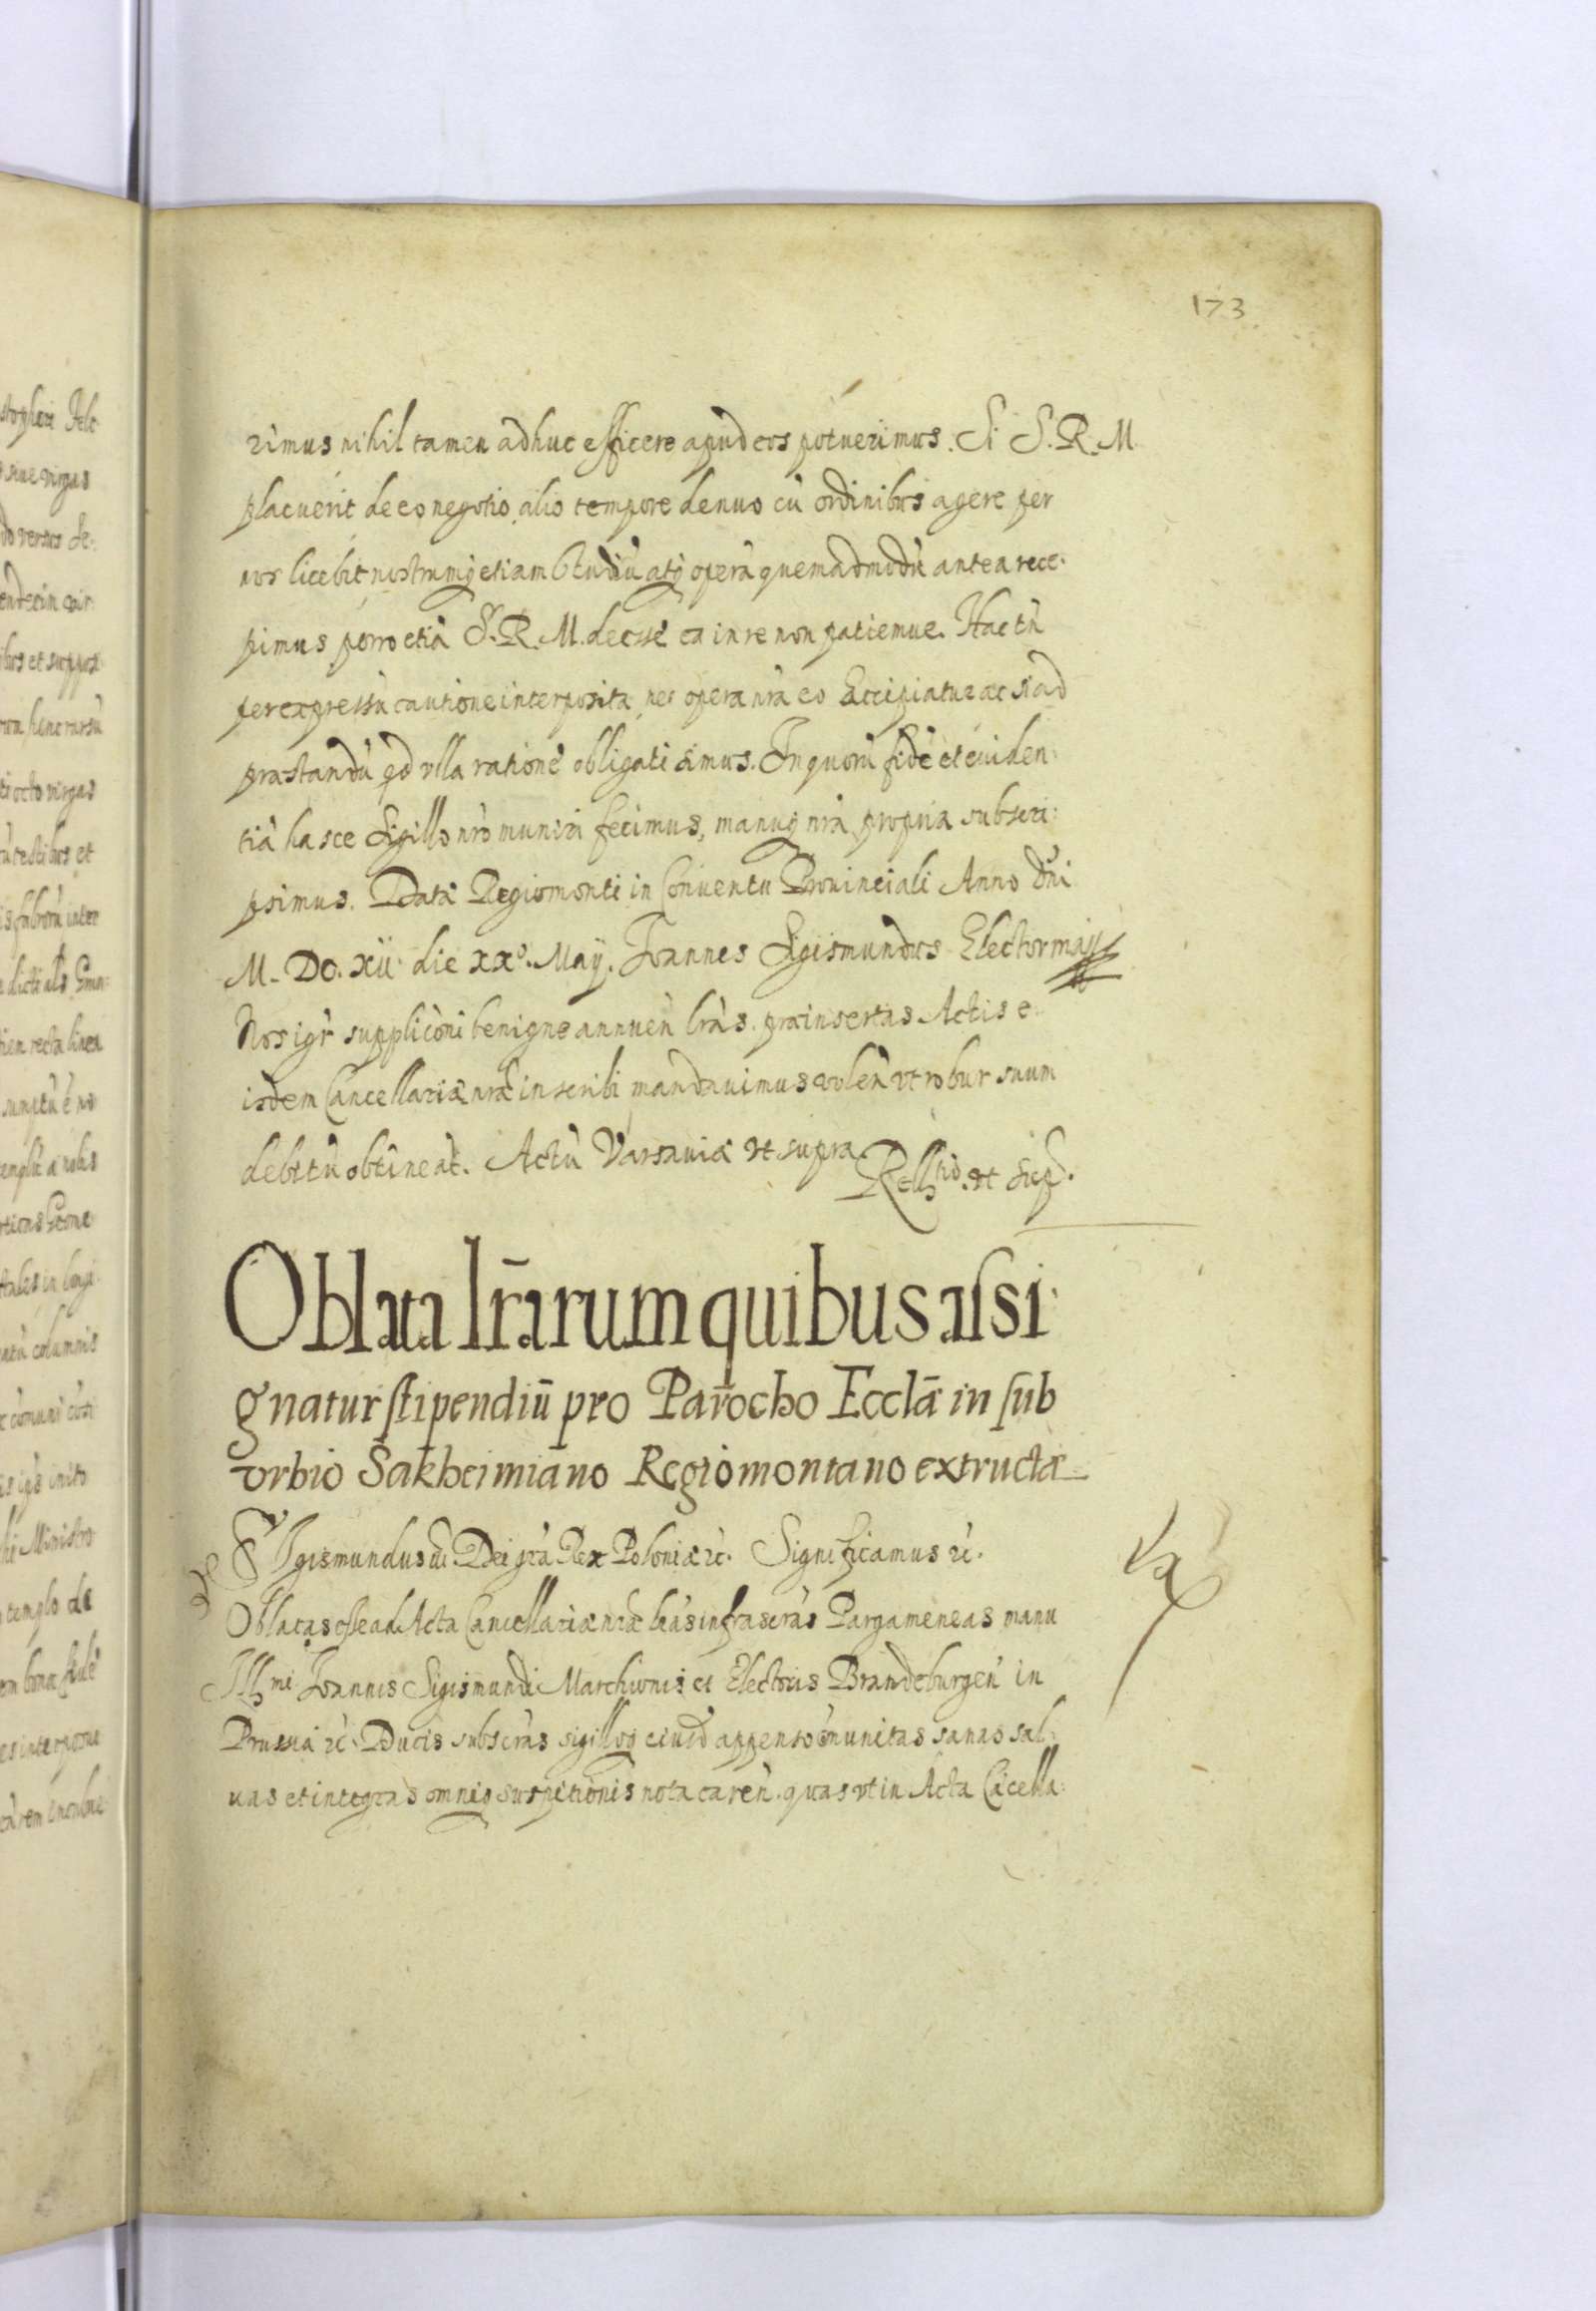 173
rimus nihil tamen adhuc efficere apud eos potuerimus. Si S. R. M.
placuerit de eo negotio alio tempore denuo cū ordinibus agere per
nos licebit nostrumq̧ etiam studiū atq̧ operā quemadmodū antea rece:
pimus porro etiā S. R. M. deesse ea in re non patiemur. Hac tn̄
per expressā cautione interposita ne opera nr̄a eo accipiatur ac si ad
præstandū qd ulla ratione obligati simus. In quorū fidē et euiden:
tiā hasce Sigillo nr̄o muniri fecimus, manuq̧ nr̄a propria subscri:
psimus. Datæ Regiomonti in Conuentu Prouinciali Anno Dn̄i
M. DC. XII. die XXº. Maÿ. Joannes Sigismundus Elector mpp
Nos igr̄ supplicōni benigne annuen̄ lr̄as præinsertas Actis e
isdem Cancellariæ nr̄æ inscribi mandauimus volen̄ vt robur suum
debitū obtineāt. Actū Varsauiæ vt supra
Relltio. vt sup.
Oblata lr̄arum quibus assi
gnatur stipendiū pro Parocho Ecclæ in sub
vrbio Sakheimiano Regiomontano extructæ
Sigismundus iii. Dei gr̄a Rex Poloniæ etc. Significamus etc.
Oblatas esse ad Acta Cancellariæ nr̄æ lr̄as infrascrās Pargameneas manu
Illmi Joannis Sigismundi Marchionis et Electoris Brandeburgen̄ in
Prussia etc. Ducis subscrās sigilloq̧ eiusd appenso cōmunitas sanas sal:
uas et integras omniq̧ suspitionis nota caren̄. quas vt in Acta Cācella: